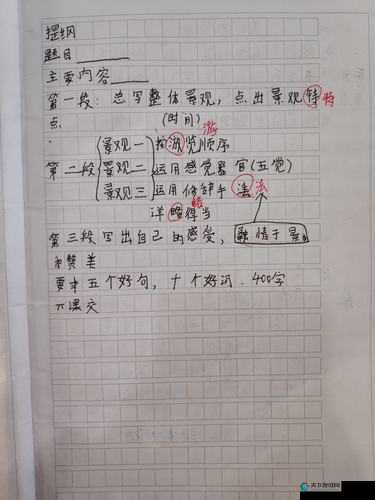 提纲
题目
主要内容
第一段：总写整体景观，点出景观特特
点 (时间) 游
景观一 按游览顺序
第二段 景观二 运用感觉器官(五觉)
景观三 运用修辞手法 法
详略得当 略
第三段写出自己的感受，融情于景
和赞美
要求五个好句，十个好词．400字
天下游戏网